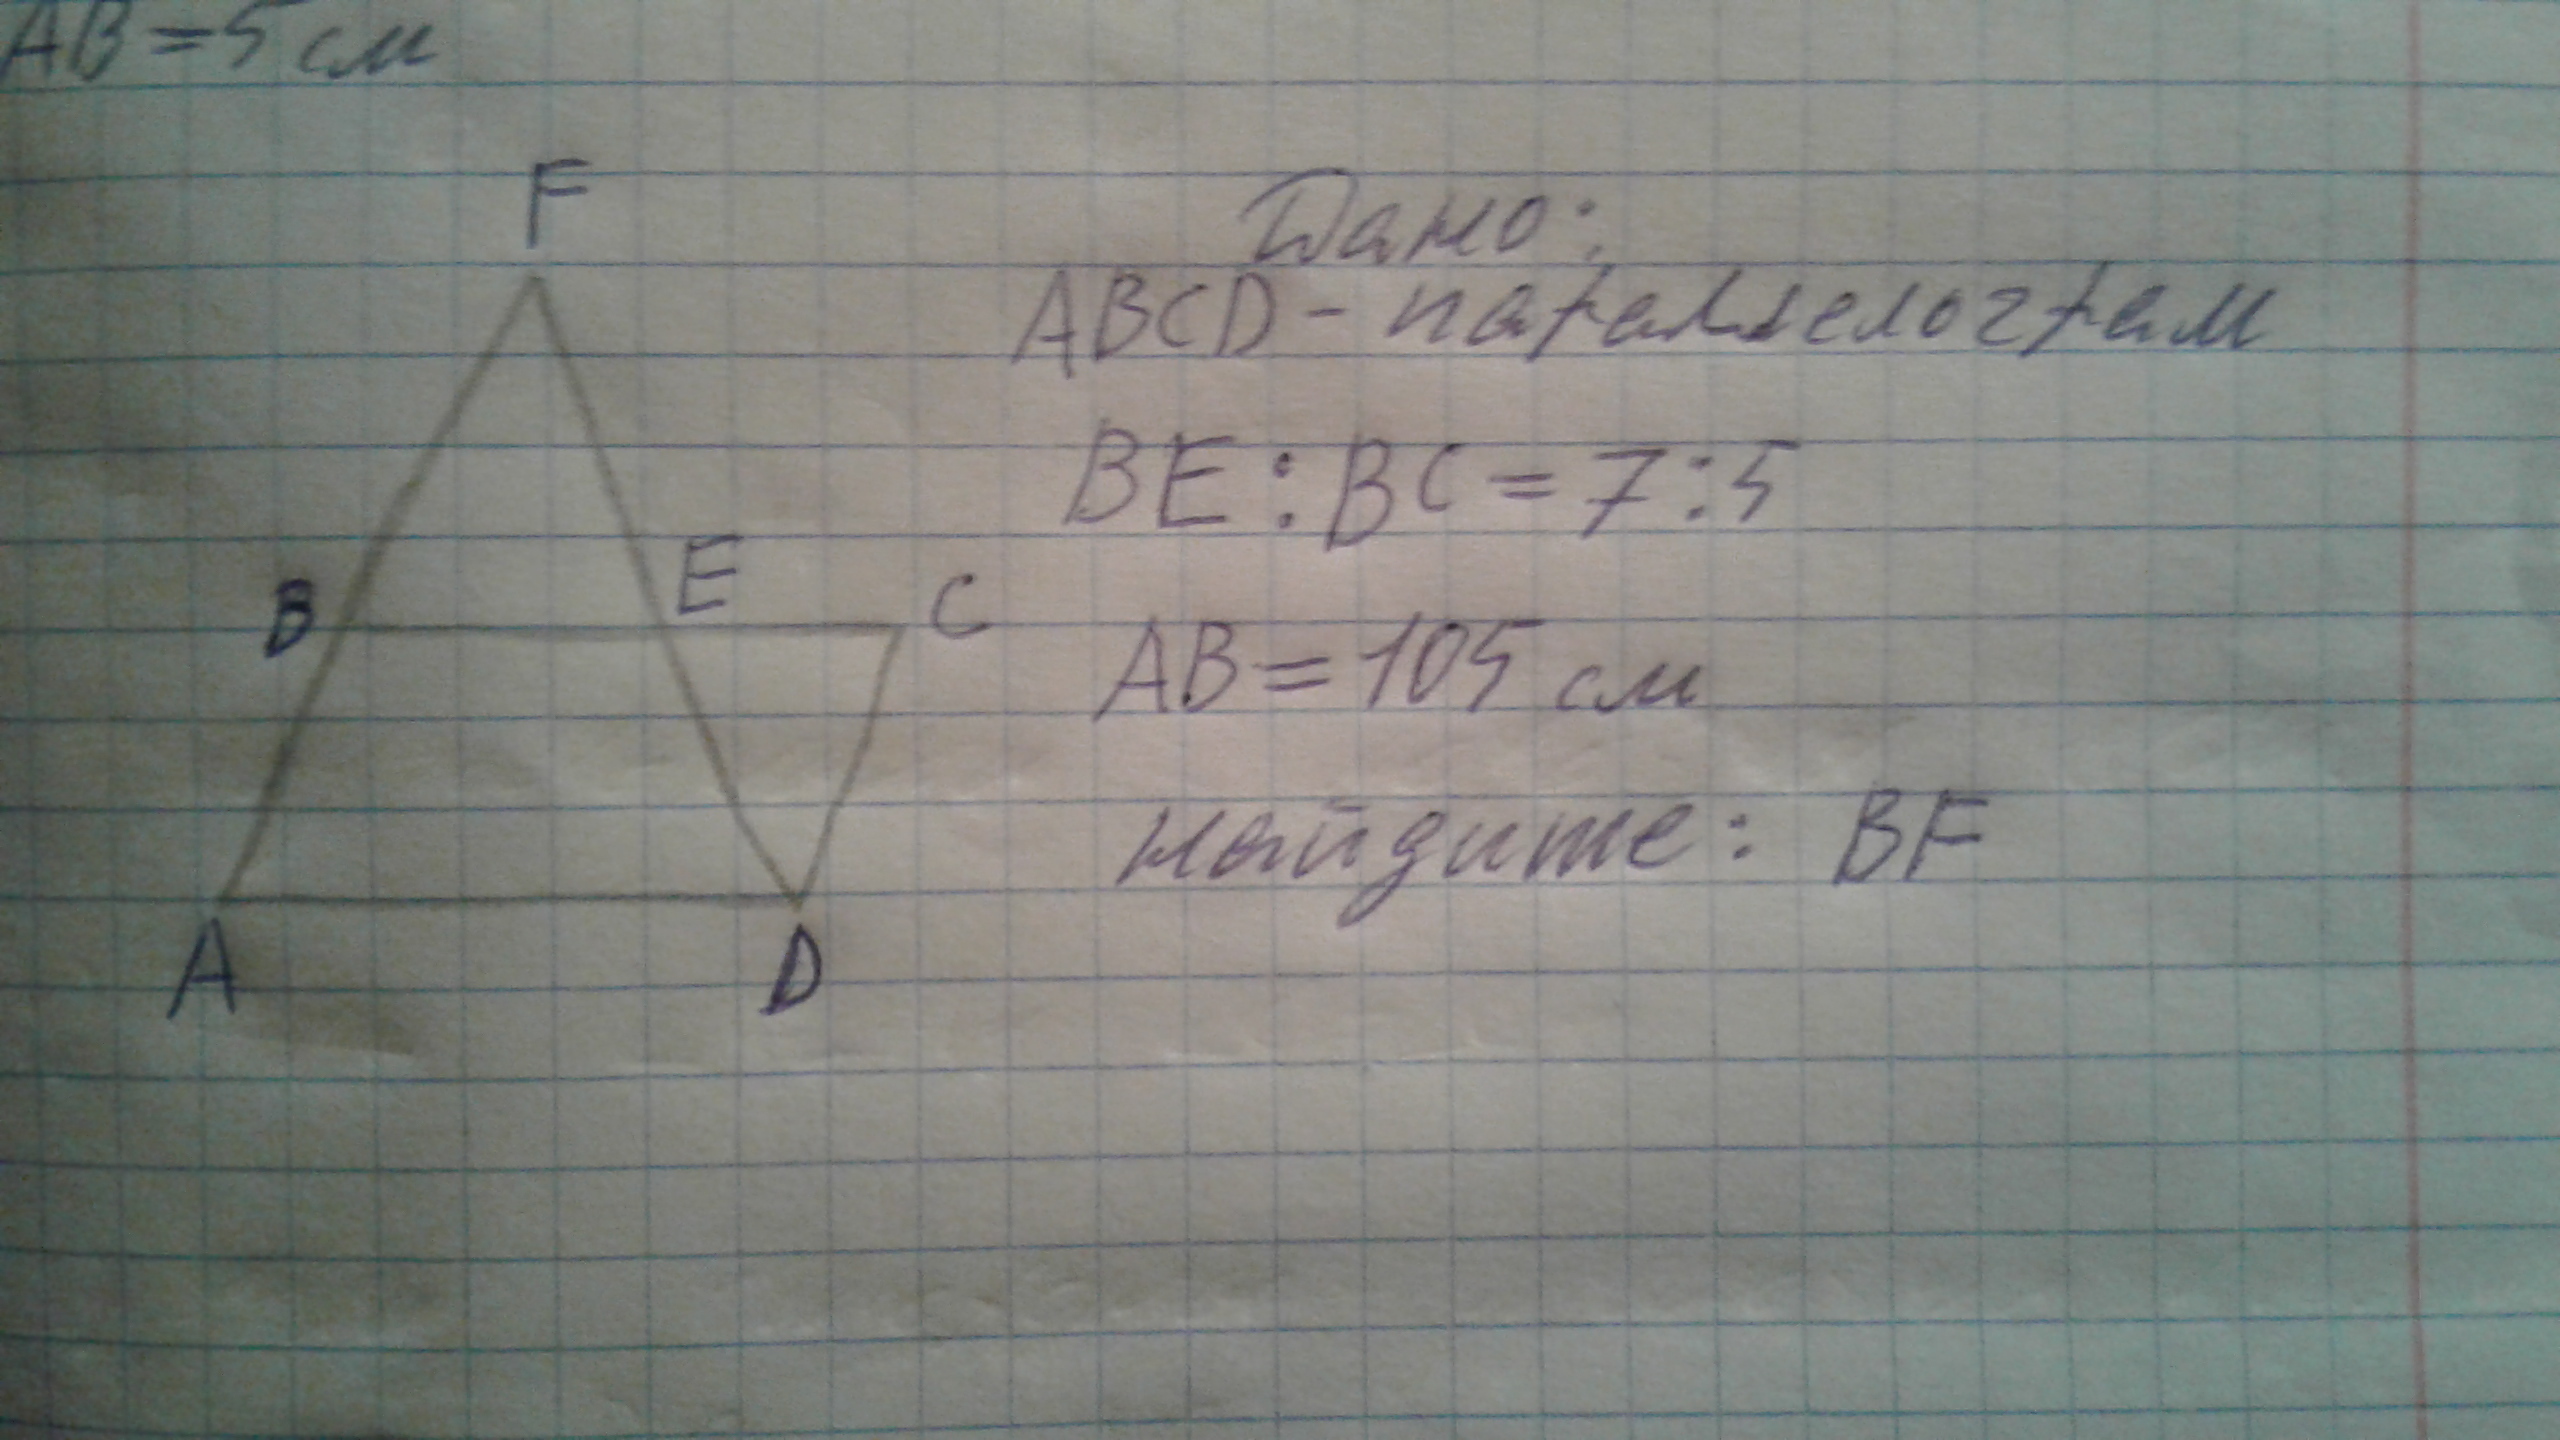 AB=5 см
F
Дано:
ABCD - параллелограм
BE : BC = 7:5
E
B
C
AB = 105 см
найдите: BF
A
D